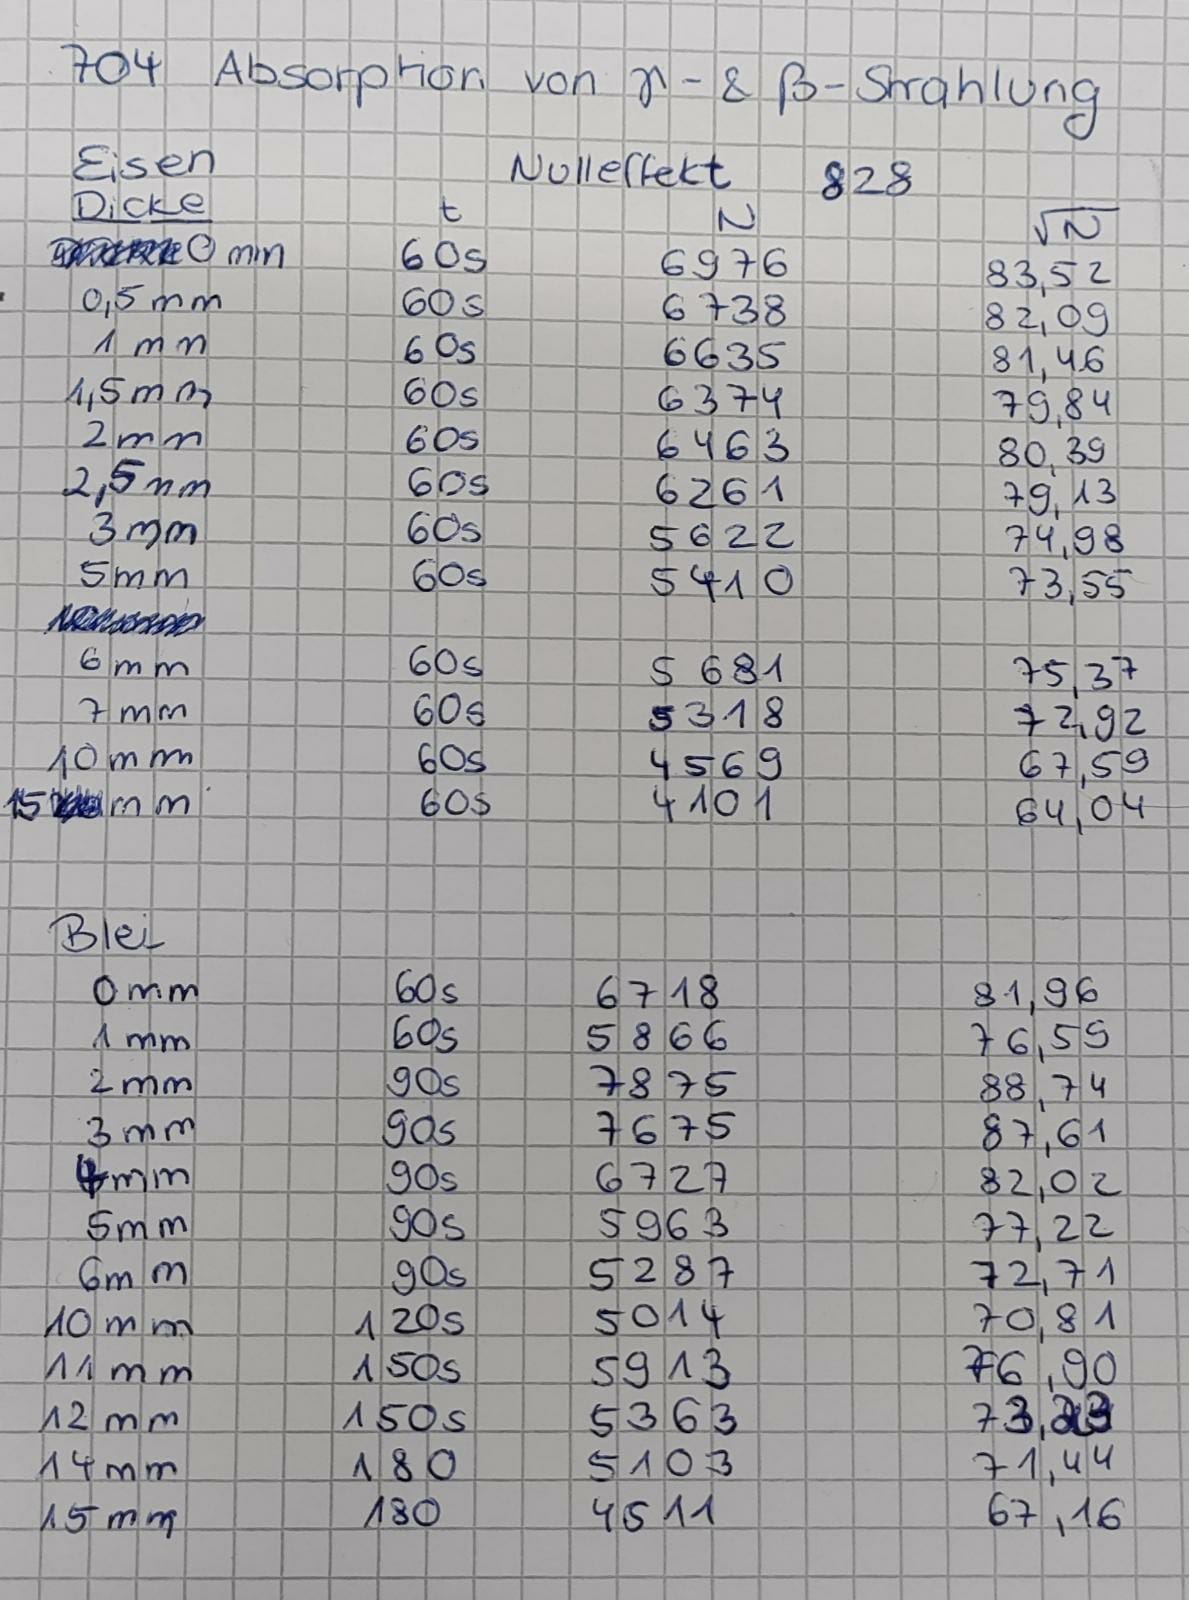 704 Absorption von γ- & β-Strahlung
Eisen Nulleffekt 828
Dicke t N √N
0 mm 60s 6976 83,52
0,5 mm 60s 6738 82,09
1 mm 60s 6635 81,46
1,5 mm 60s 6374 79,84
2 mm 60s 6463 80,39
2,5 mm 60s 6261 79,13
3 mm 60s 5622 74,98
5 mm 60s 5410 73,55
6 mm 60s 5681 75,37
7 mm 60s 5318 72,92
10 mm 60s 4569 67,59
15 mm 60s 4101 64,04
Blei
0 mm 60s 6718 81,96
1 mm 60s 5866 76,59
2 mm 90s 7875 88,74
3 mm 90s 7675 87,61
4 mm 90s 6727 82,02
5 mm 90s 5963 77,22
6 mm 90s 5287 72,71
10 mm 120s 5014 70,81
11 mm 150s 5913 76,90
12 mm 150s 5363
14 mm 180 5103 71,44
15 mm 180 4511 67,16